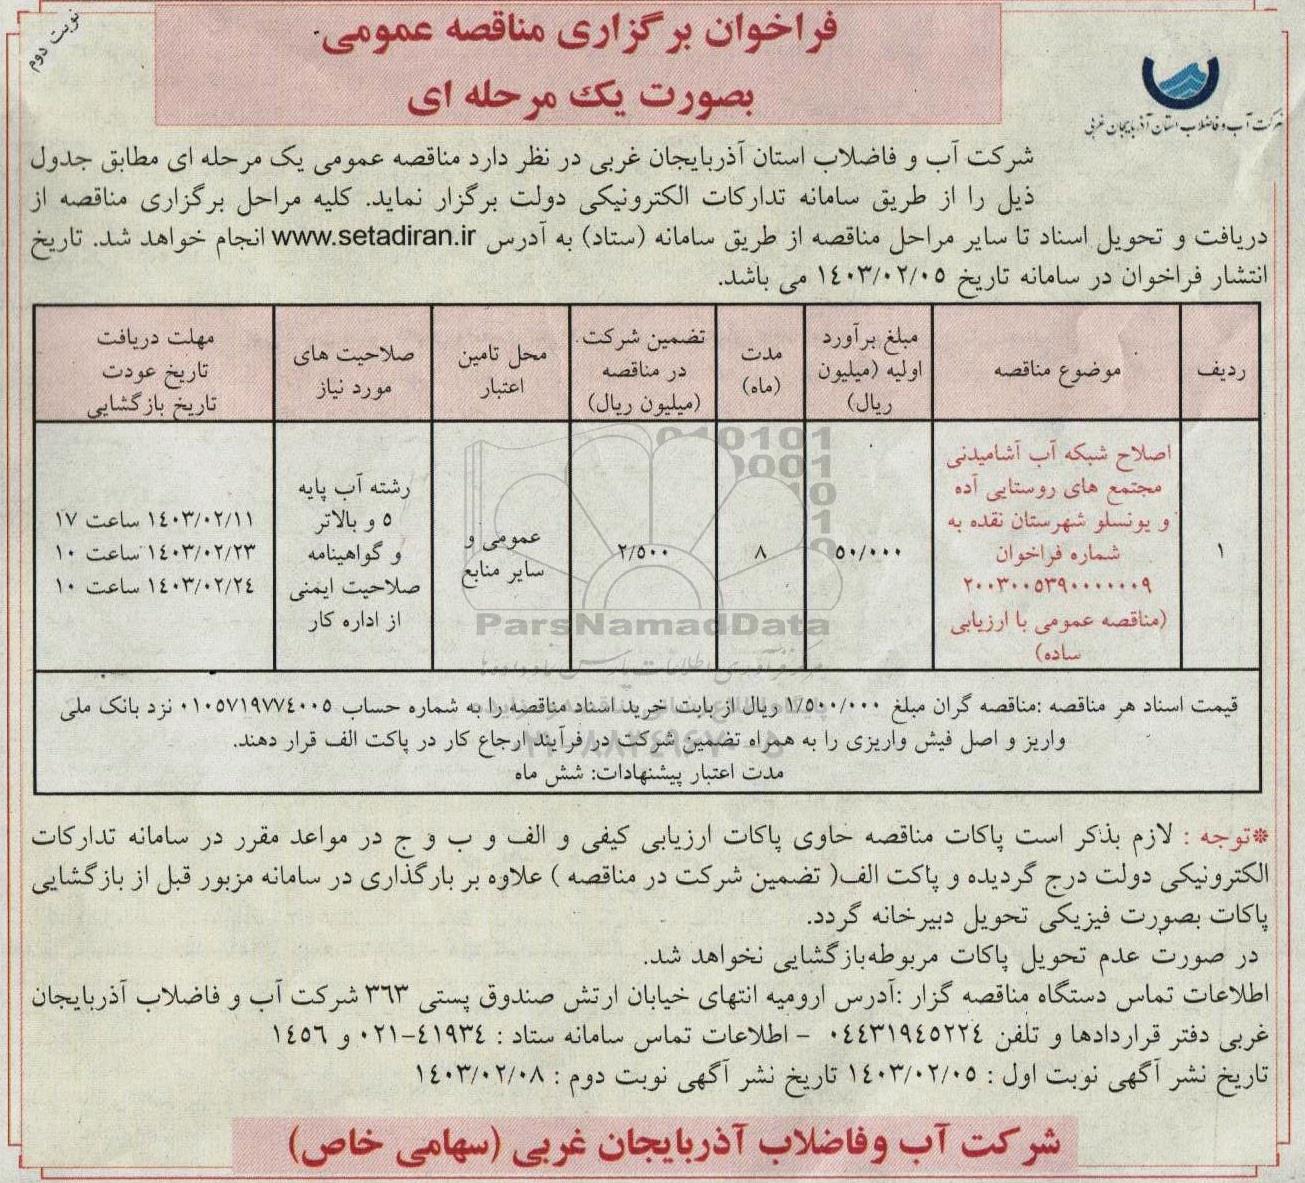 نوبت دوم
فراخوان برگزاری مناقصه عمومی
بصورت یک مرحله ای
شرکت آب و فاضلاب استان آذربایجان غربی
شرکت آب و فاضلاب استان آذربایجان غربی در نظر دارد مناقصه عمومی یک مرحله ای مطابق جدول
ذیل را از طریق سامانه تدارکات الکترونیکی دولت برگزار نماید. کلیه مراحل برگزاری مناقصه از
دریافت و تحویل اسناد تا سایر مراحل مناقصه از طریق سامانه (ستاد) به آدرس www.setadiran.ir انجام خواهد شد. تاریخ
انتشار فراخوان در سامانه تاریخ ۱٤۰۳/۰۲/۰۵ می باشد.
ردیف
موضوع مناقصه
مبلغ برآورد
اولیه (میلیون
ریال)
مدت
(ماه)
تضمین شرکت
در مناقصه
(میلیون ریال)
محل تامین
اعتبار
صلاحیت های
مورد نیاز
مهلت دریافت
تاریخ عودت
تاریخ بازگشایی
۱
اصلاح شبکه آب آشامیدنی
مجتمع های روستایی آده
و یونسلو شهرستان نقده به
شماره فراخوان
۲۰۰۳۰۰۵۳۹۰۰۰۰۰۰۹
(مناقصه عمومی با ارزیابی
ساده)
۵۰/۰۰۰
۸
۲/۵۰۰
عمومی و
سایر منابع
رشته آب پایه
۵ و بالاتر
و گواهینامه
صلاحیت ایمنی
از اداره کار
۱٤۰۳/۰۲/۱۱ ساعت ۱۷
۱٤۰۳/۰۲/۲۳ ساعت ۱۰
۱٤۰۳/۰۲/۲٤ ساعت ۱۰
ParsNamadData
قیمت اسناد هر مناقصه :مناقصه گران مبلغ ۱/۵۰۰/۰۰۰ ریال از بابت خرید اسناد مناقصه را به شماره حساب ۰۱۰۵۷۱۹۷۷٤۰۰۵ نزد بانک ملی
واریز و اصل فیش واریزی را به همراه تضمین شرکت در فرآیند ارجاع کار در پاکت الف قرار دهند.
مدت اعتبار پیشنهادات: شش ماه
*توجه : لازم بذکر است پاکات مناقصه حاوی پاکات ارزیابی کیفی و الف و ب و ج در مواعد مقرر در سامانه تدارکات
الکترونیکی دولت درج گردیده و پاکت الف( تضمین شرکت در مناقصه ) علاوه بر بارگذاری در سامانه مزبور قبل از بازگشایی
پاکات بصورت فیزیکی تحویل دبیرخانه گردد.
در صورت عدم تحویل پاکات مربوطه‌بازگشایی نخواهد شد.
اطلاعات تماس دستگاه مناقصه گزار :آدرس ارومیه انتهای خیابان ارتش صندوق پستی ۳٦۳ شرکت آب و فاضلاب آذربایجان
غربی دفتر قراردادها و تلفن ۰٤٤۳۱۹٤۵۲۲٤ - اطلاعات تماس سامانه ستاد : ٤۱۹۳٤-۰۲۱ و ۱٤۵٦
تاریخ نشر آگهی نوبت اول : ۱٤۰۳/۰۲/۰۵ تاریخ نشر آگهی نوبت دوم : ۱٤۰۳/۰۲/۰۸
شرکت آب وفاضلاب آذربایجان غربی (سهامی خاص)